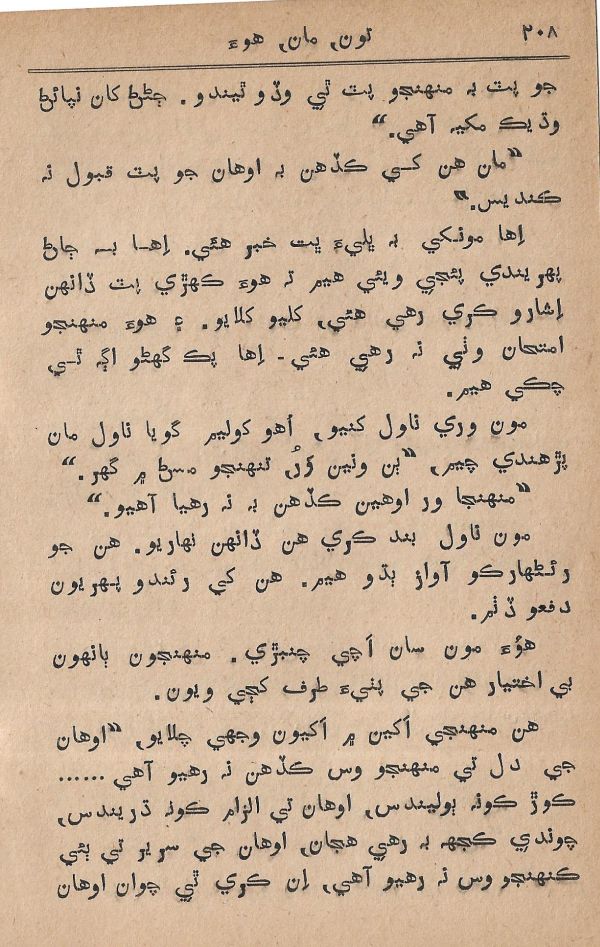 تون، مان، هوءَ
۲۰۸
جو پٽ بہ منهنجو پٽ ٿي وڏو ٿيندو. ڄڻڻ کان نپائڻ
وڌيڪ مکيہ آهي.“
”مان هن کي ڪڏهن بہ اوهان جو پٽ قبول نہ
ڪنديس.“
اِها مونکي بہ ڀليءَ ڀت خبر هئي. اِها بہ ڄاڻ
پهريندي پئجي ويئي هيم تہ هوءَ ڪهڙي پٽ ڏانهن
اِشارو ڪري رهي هئي، کليو کلايو. ۽ هوءَ منهنجو
امتحان وٺي نہ رهي هئي - اِها پڪ گهڻو اڳہ ٿي
چڪي هيم.
مون وري ناول کنيو، اُهو کوليم گويا ناول مان
پڙهندي چيم، ”ٻن ونين وَرُ، تنهنجو مسڻ ۾ گهر.“
”منهنجا ور اوهين ڪڏهن بہ نہ رهيا آهيو.“
مون ناول بند ڪري هن ڏانهن نهاريو. هن جو
رئڻهارڪو آواز ٻڌو هيم. هن کي رئندو پهريون
دفعو ڏٺم.
هوُءَ مون سان اَچي چنبڙي. منهنجون ٻانهون
بي اختيار هن جي پٺيءَ طرف کڄي ويون.
هن منهنجي اَکين ۾ اَکيون وجهي چلايو، ”اوهان
جي دل تي منهنجو وس ڪڏهن نہ رهيو آهي......
ڪوڙ ڪونہ ٻوليندس، اوهان تي الزام ڪونہ ڌريندس،
چوندي ڪجهہ بہ رهي هجان، اوهان جي سرير تي ٻئي
ڪنهنجو وس نہ رهيو آهي، اِن ڪري ٿي چوان اوهان